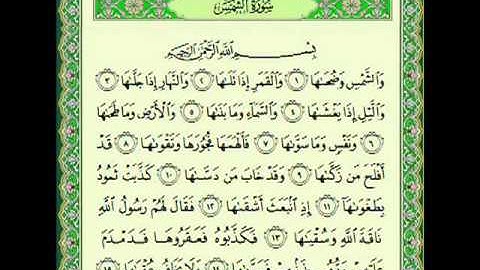 سُورَةُ الشَّمْسِ
بِسْمِ اللَّهِ الرَّحْمَٰنِ الرَّحِيمِ
وَالشَّمْسِ وَضُحَىٰهَا ١ وَالْقَمَرِ إِذَا تَلَىٰهَا ٢ وَالنَّهَارِ إِذَا جَلَّىٰهَا ٣
وَالَّيْلِ إِذَا يَغْشَىٰهَا ٤ وَالسَّمَاءِ وَمَا بَنَىٰهَا ٥ وَالْأَرْضِ وَمَا طَحَىٰهَا
٦ وَنَفْسٍ وَمَا سَوَّىٰهَا ٧ فَأَلْهَمَهَا فُجُورَهَا وَتَقْوَىٰهَا ٨ قَدْ
أَفْلَحَ مَن زَكَّىٰهَا ٩ وَقَدْ خَابَ مَن دَسَّىٰهَا ١٠ كَذَّبَتْ ثَمُودُ
بِطَغْوَىٰهَا ١١ إِذِ انبَعَثَ أَشْقَىٰهَا ١٢ فَقَالَ لَهُمْ رَسُولُ اللَّهِ
نَاقَةَ اللَّهِ وَسُقْيَىٰهَا ١٣ فَكَذَّبُوهُ فَعَقَرُوهَا فَدَمْدَمَ